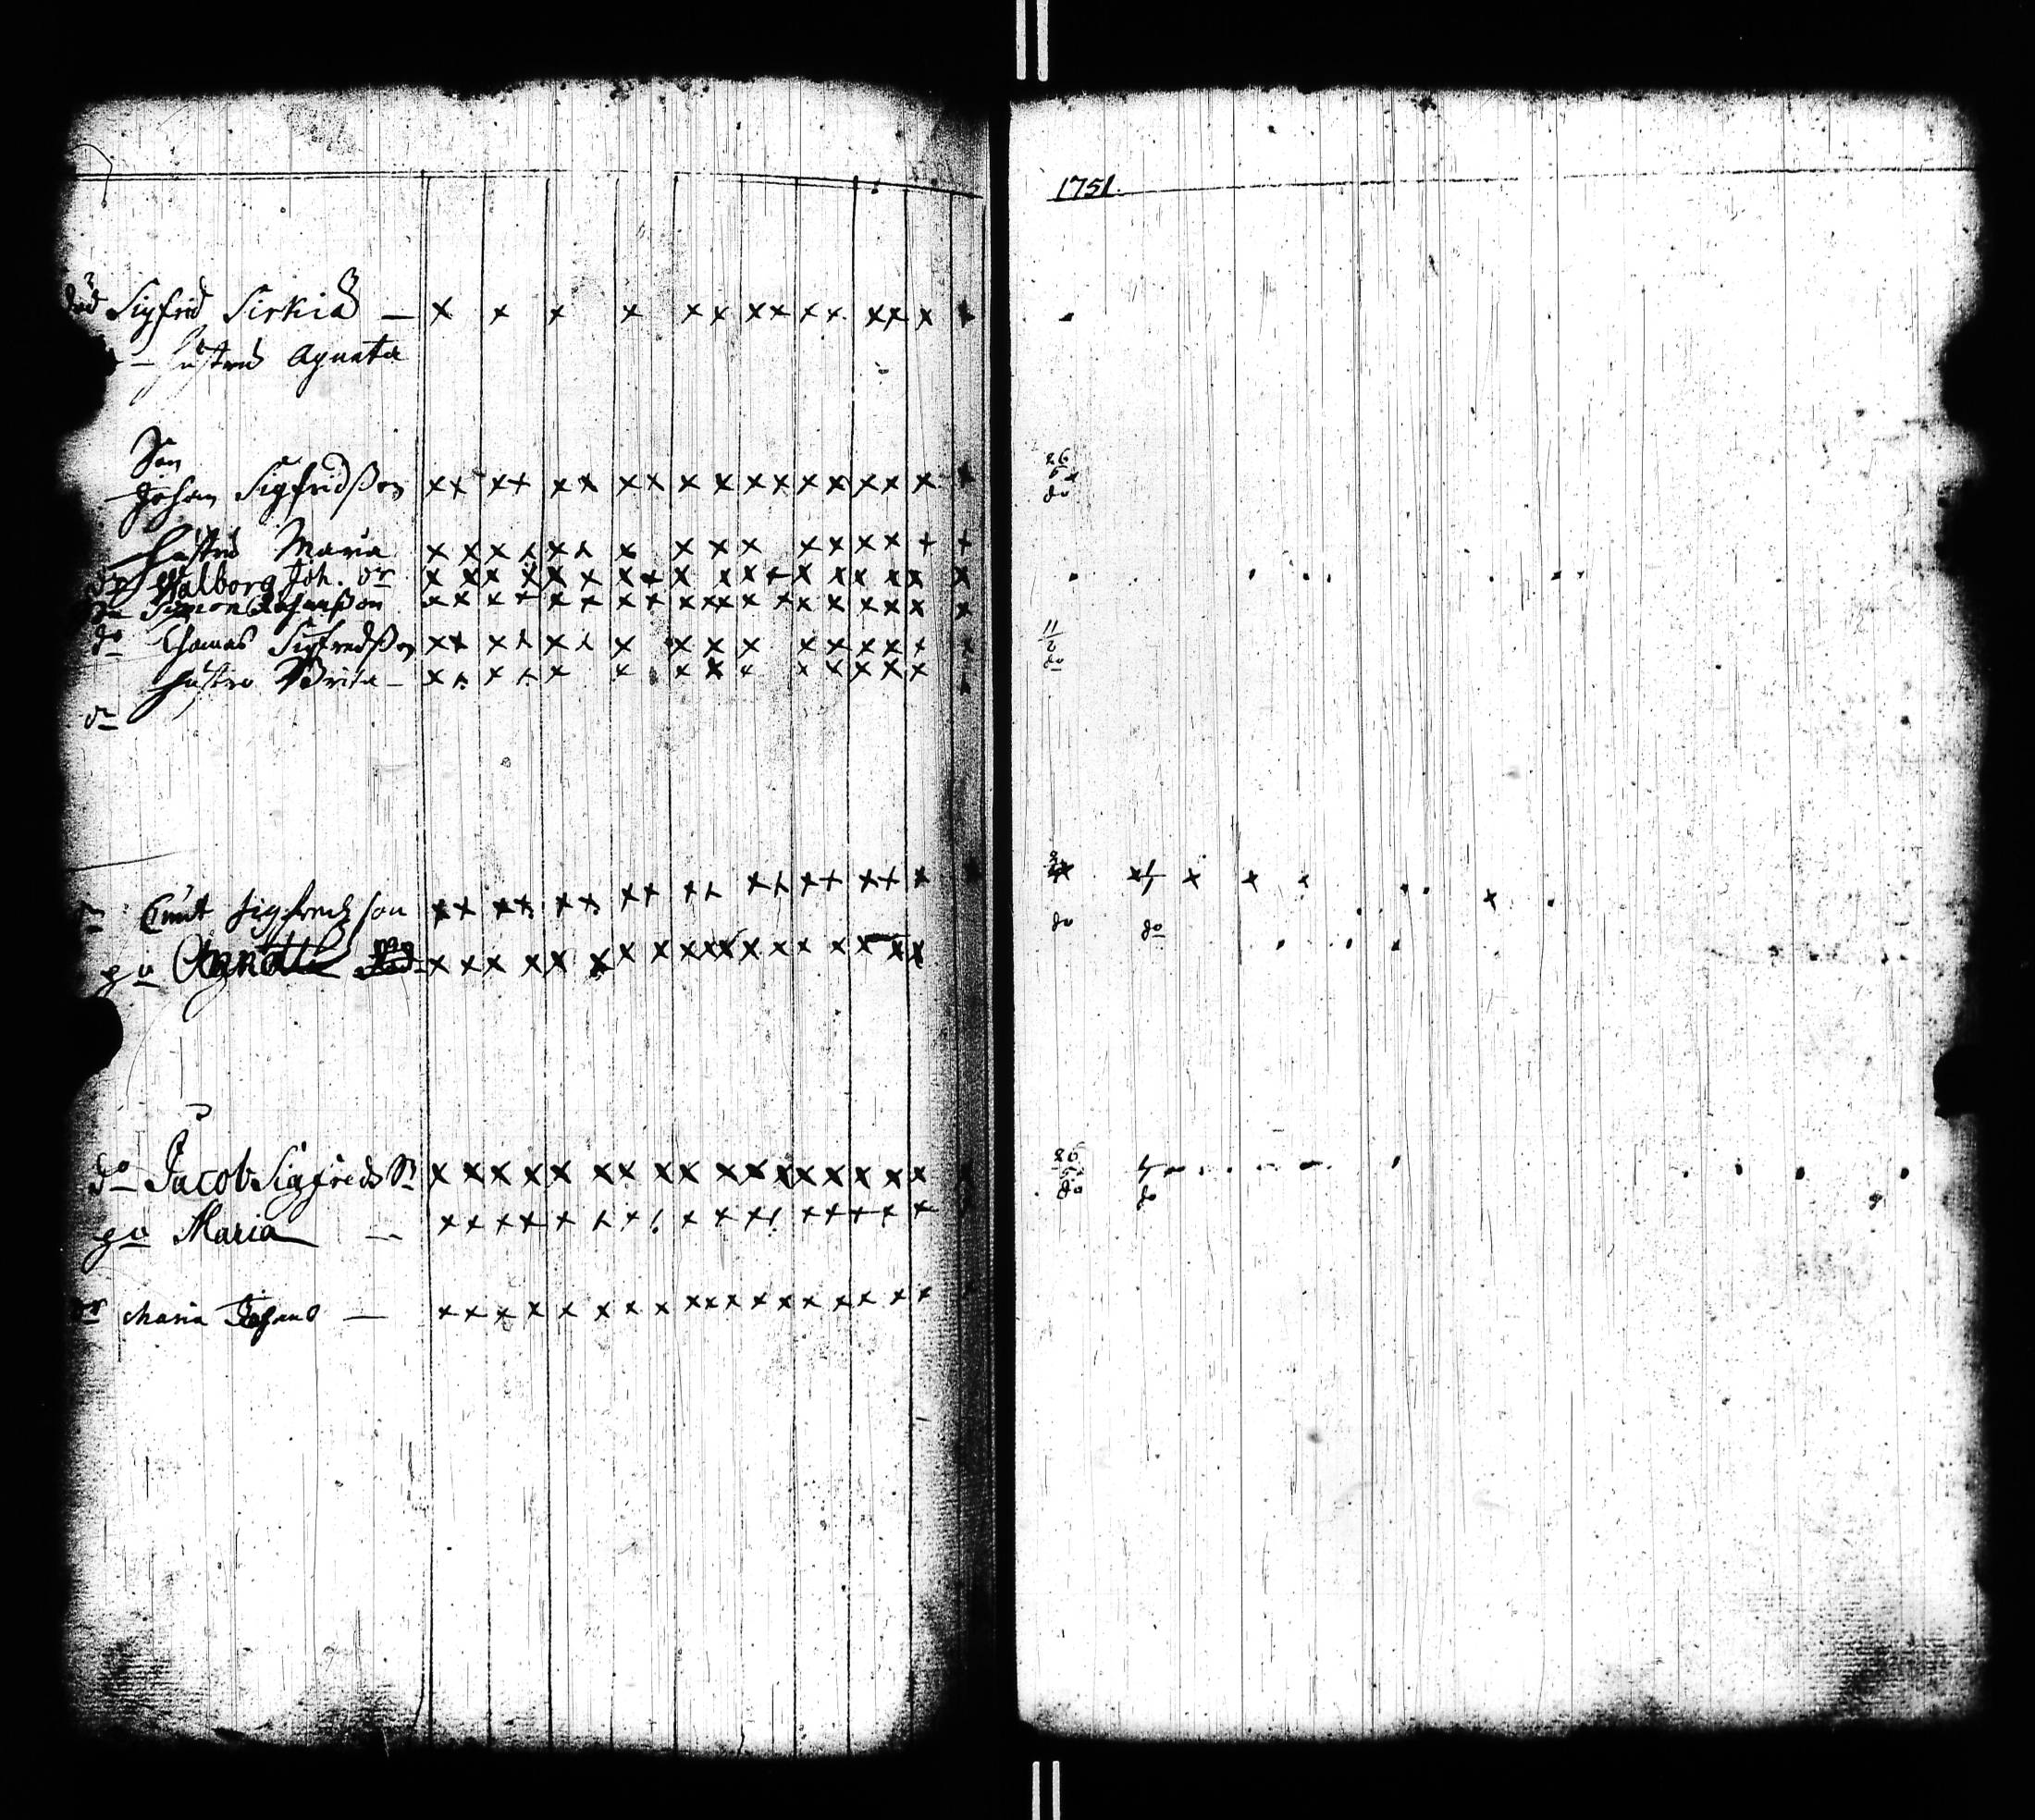 död Sigfrid Sirkiä — x x x x x x x x x x x x x
— hustru Agneta
Son
Johan Sigfridßon x x x x x x x x x x x x x x x x x
hustru Maria x x x x x x x x x x x x x x x x x
dr Walborg Joh. dr x x x x x x x x x x x x x x x x x x
Simon Johanßon x x x x x x x x x x x x x x x x x x
do Thomas Sigfredßon x x x x x x x x x x x x x x x x
hustru Brita — x x x x x x x x x x x x x x x
dr
Cnut Sigfredsson x x x x x x x x x x x x x x x x x
gu Agnetta x x x x x x x x x x x x x x x x x x
do Jacob Sigfreds Sn x x x x x x x x x x x x x x x x x x
gu Maria — x x x x x x x x x x x x x x x x x
dr Maria Johans — x x x x x x x x x x x x x x x x x x
1751
26
5
do
11
2
do
x x x x x x x
do do
26
5
do do